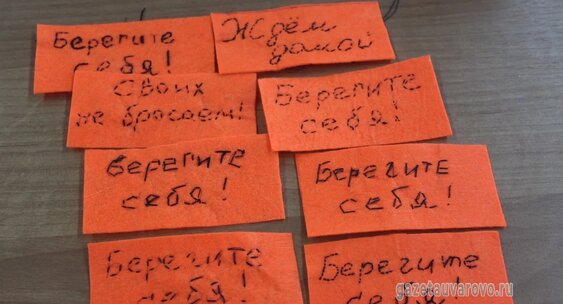 Берегите
себя!
Ждём
домой
Своих
не бросаем!
Берегите
себя!
Берегите
себя!
Берегите
себя!
Берегите
себя!
Берегите
себя!
gazetauvarovo.ru